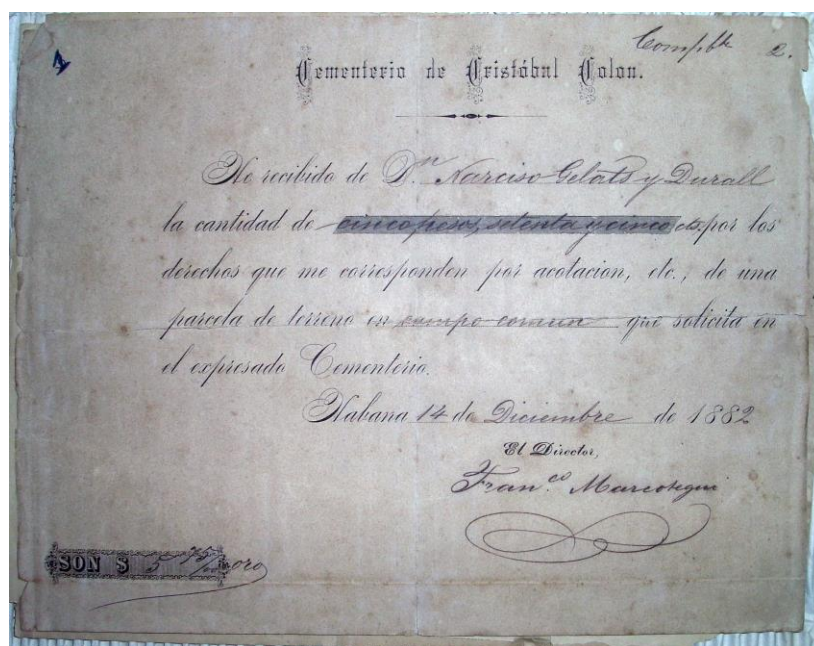 Compbte 2.
Cementerio de Cristóbal Colon.
He recibido de Dn. Narciso Gelats y Durall
la cantidad de cinco pesos, setenta y cinco cts. por los
derechos que me corresponden por acotacion, etc., de una
parcela de terreno en campo comun que solicita en
el expresado Cementerio.
Habana 14 de Diciembre de 1882
El Director,
Franco. Marcotegui
SON $ 5 75/100 oro